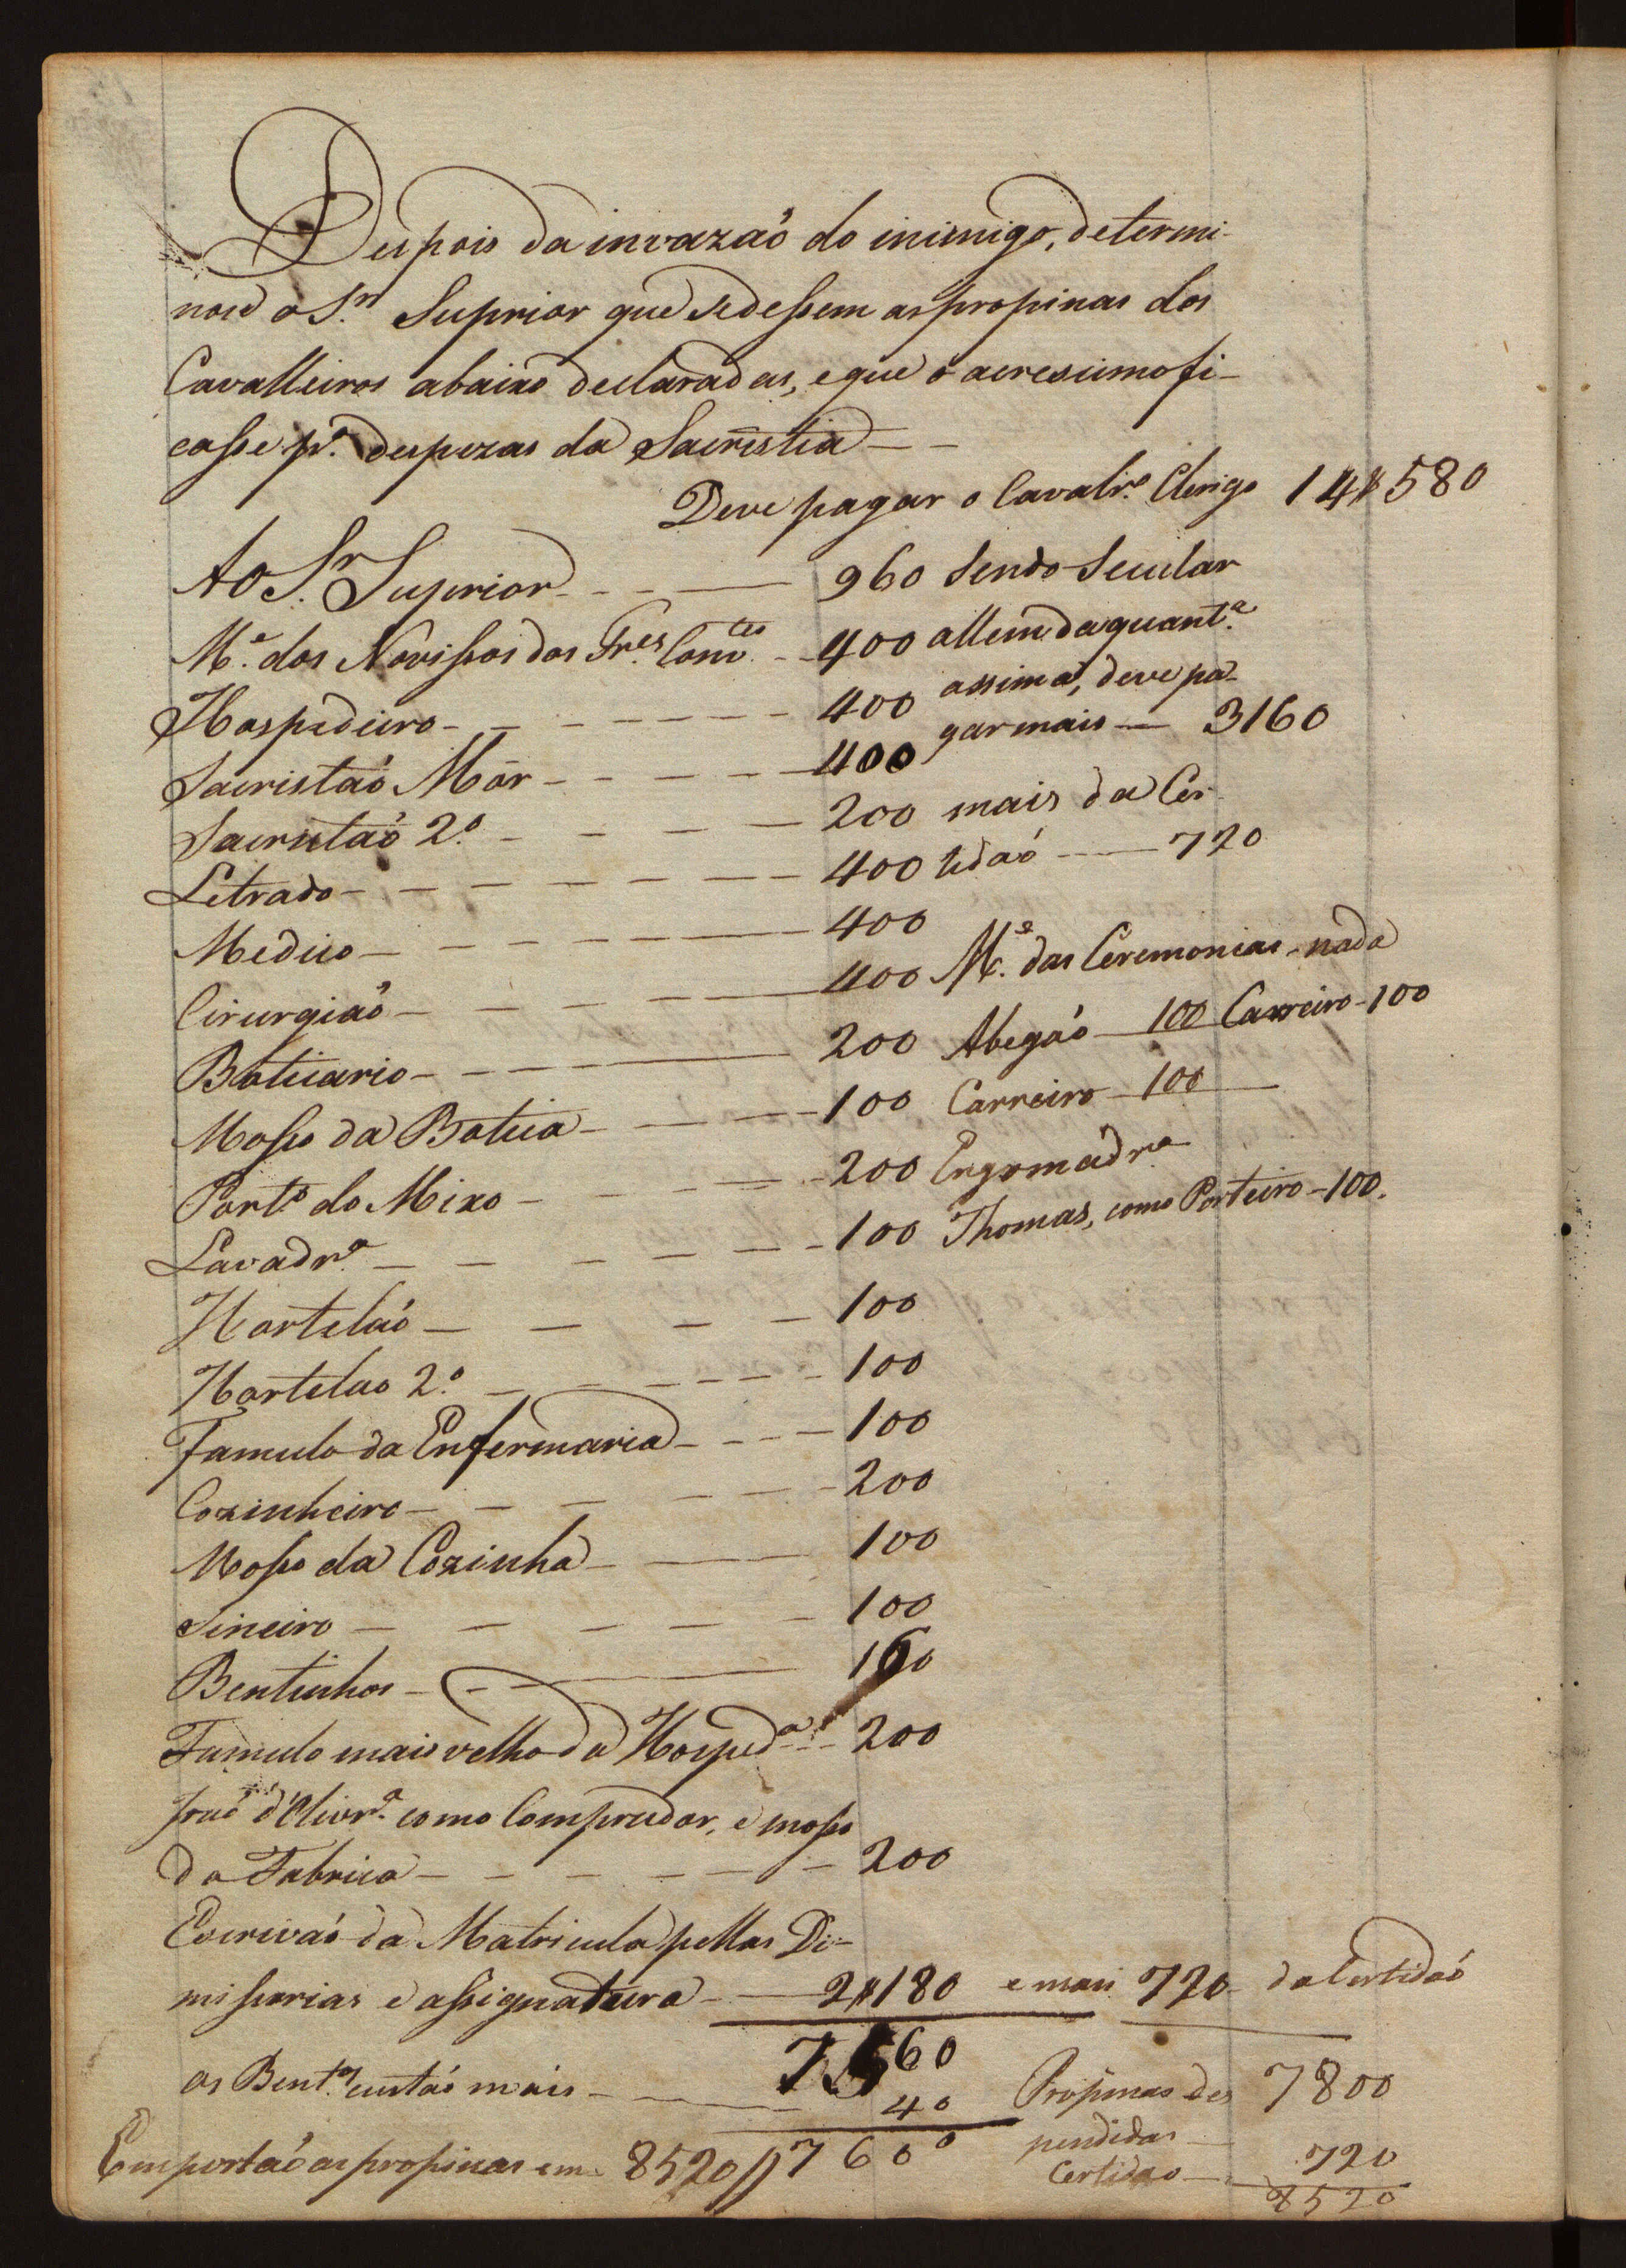 Depois da invazaõ do inimigo, determi-
nou o S.r Suprior que se dessem as propinas dos
Cavalleiros abaixo declaradas, e que o acresimo fi-
casse p.a despezas da Sacristia — —
Deve pagar o Cavalr.o Clerigo 14$580
Ao S.r Suprior - - — 960 Sendo Secular
M.e dos Novissos das Tres Com.tes - - 400 allem da quant.a
Hospedeiro - - - - - - - - 400 assima, deve pa-
gar mais — 3160
Sacristaõ Mór - - - - - 400
Sacristaõ 2.o - - - - 200 mais da Cer-
Letrado - - - - - - - 400 tidaõ — 720
Medico - - - - - - 400
Cirurgiaõ - - - - - 400 M.e das Ceremonias - nada
Boticario - - - - 200 Abegaõ — 100 Carreiro - 100
Mosso da Botica - - - - 100 Carreiro - 100 —
Port.o do Mixo - - - - - 200 Engomadr.a
Lavadr.a - - - - - - 100 Thomas, como Porteiro - 100.
Hortelaõ - - - - 100
Hortelao 2.o - - - - - 100
Famulo da Enfermaria - - - - 100
Cozinheiro - - - - - - 200
Mosso da Cozinha - — 100
Sineiro - - - - - 100
Bentinhos - - - — 160
Famulo mais velho da Hosped.a - - 200
Joaõ d'Olivr.a como Comprador, e mosso
da Fabrica - - - - - - 200
Escrivaõ da Matricula pellas Di-
missorias e assignatura — 2$180 e mais 720 da Certidaõ
7560
os Bent.os custaõ mais - — 40 Propinas des 7800
pendidas —
Emportaõ as propinas em 8520 // 7600 Certidao — 720
8520